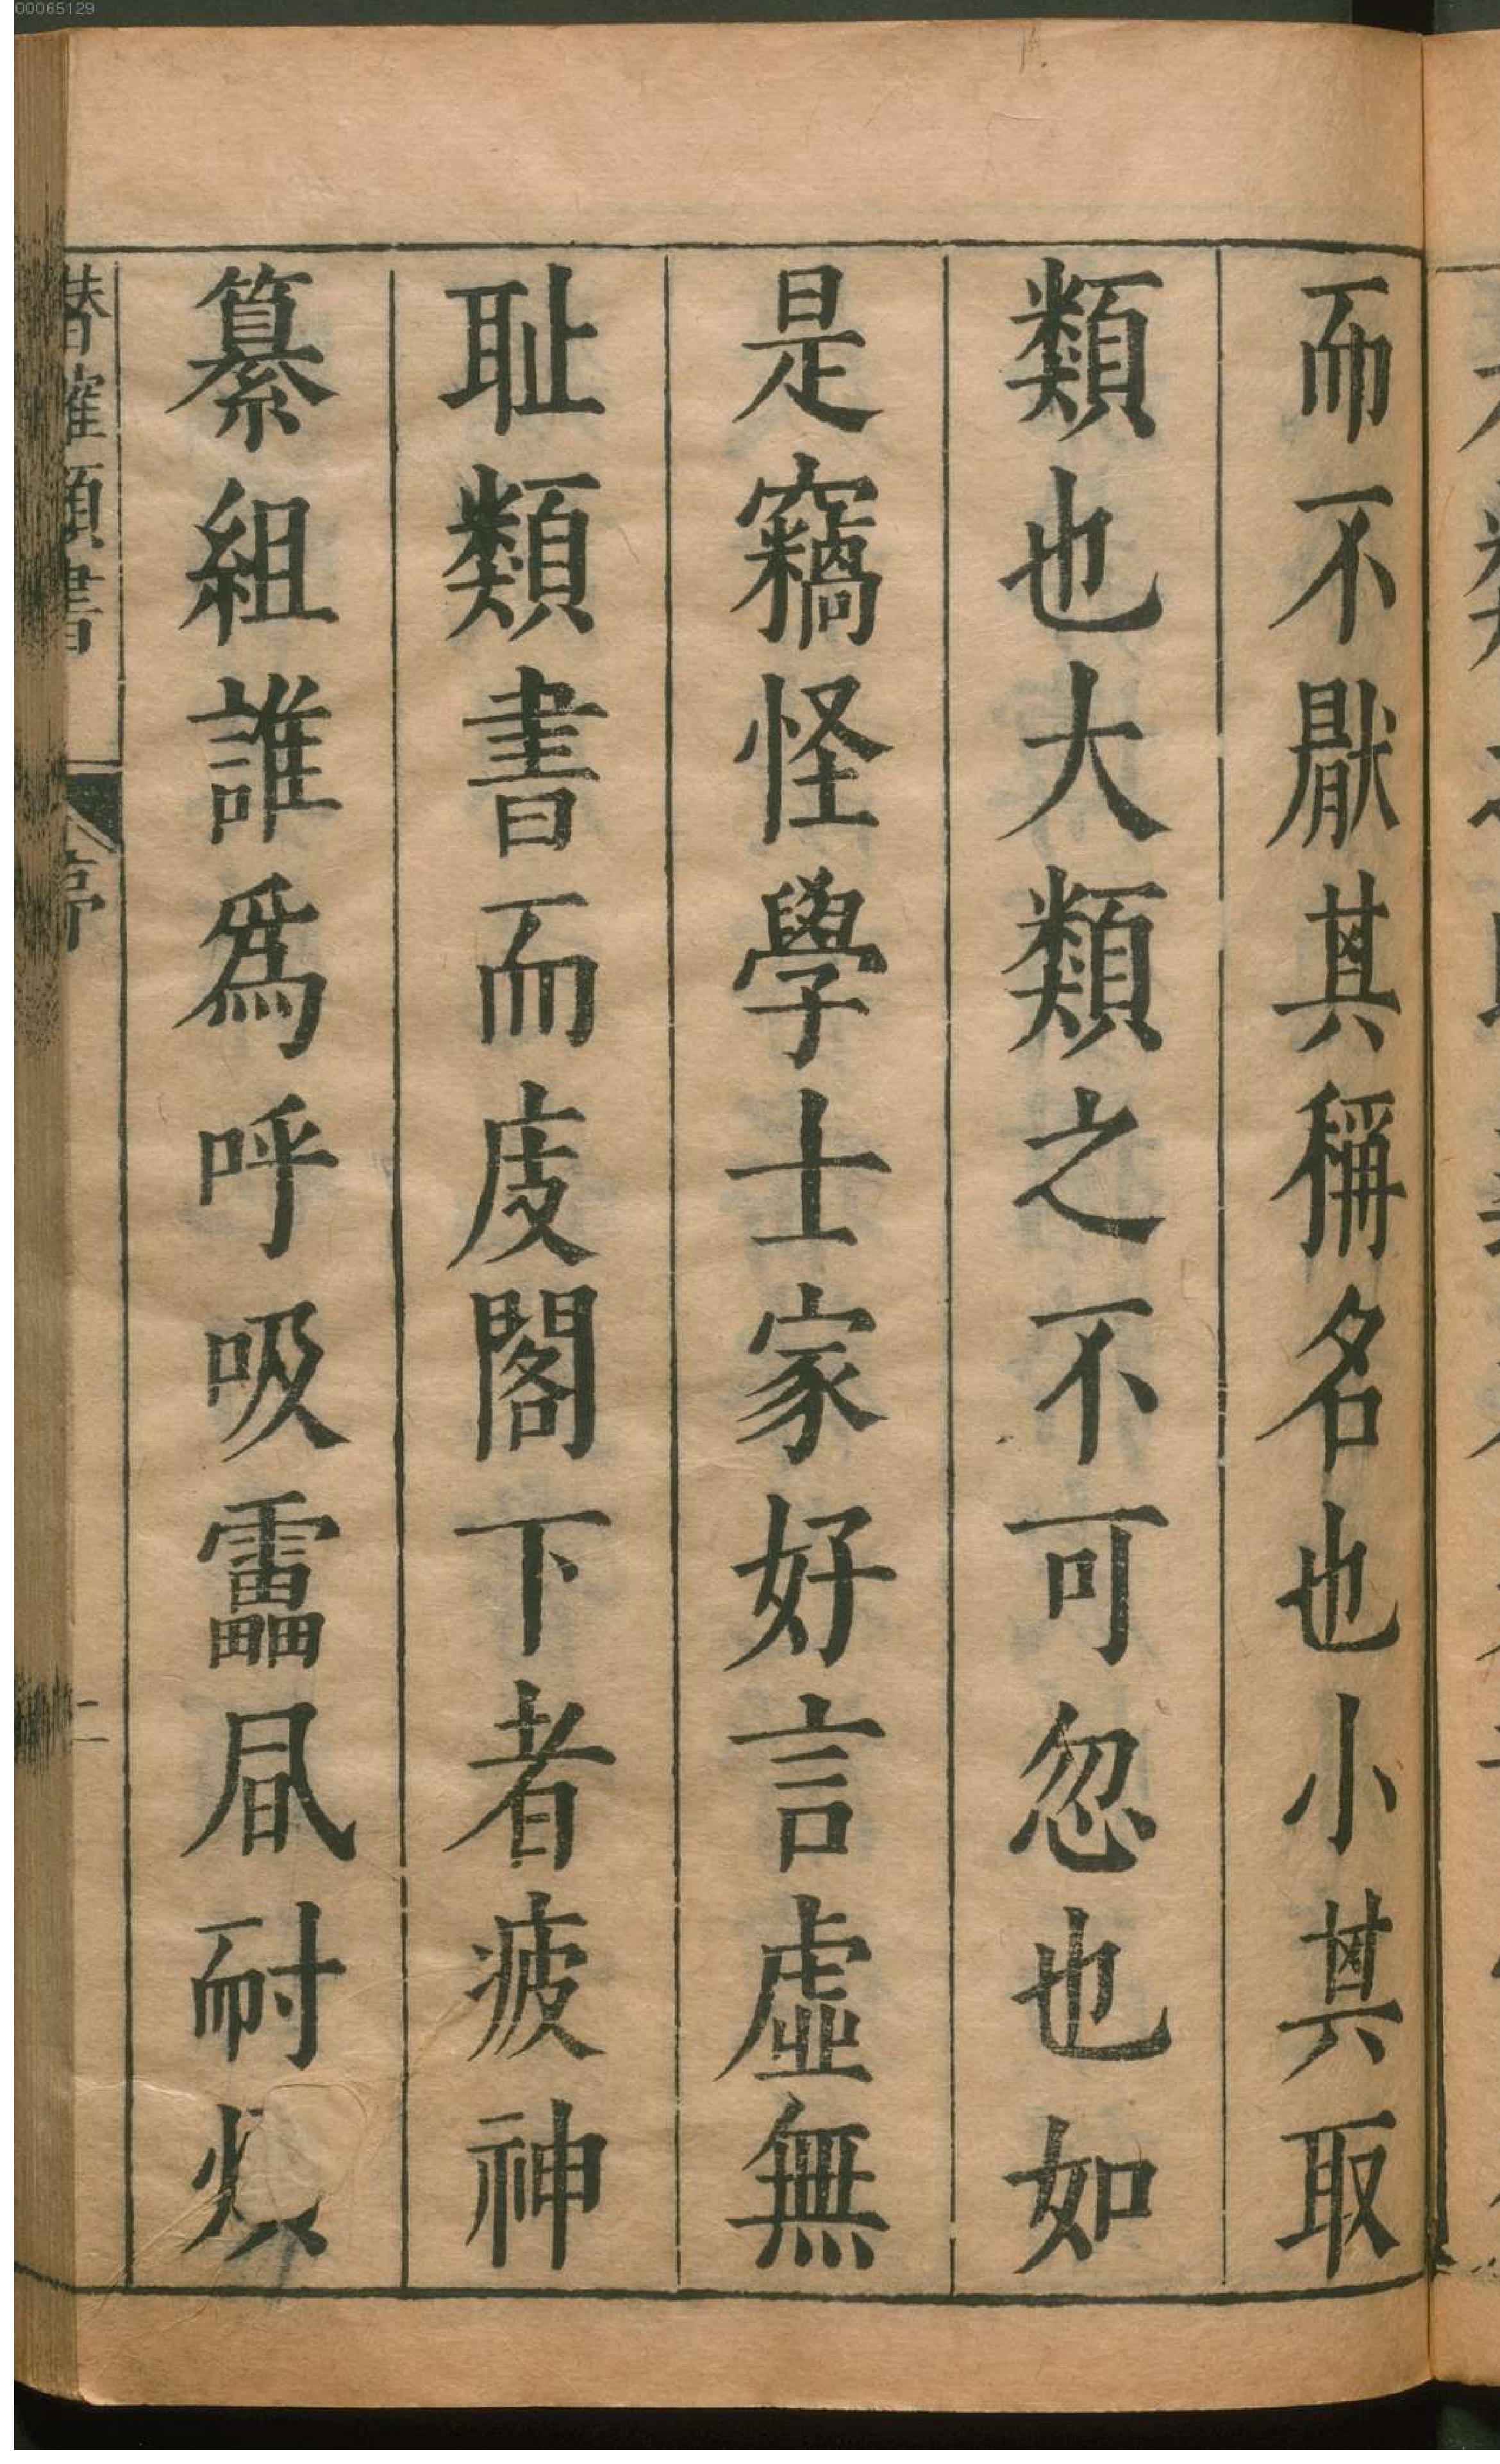 而不厭其稱名也小其取
類也大類之不可忽也如
是竊怪學士家好言虛無
耻類書而庋閣下者疲神
纂組誰為呼吸靁凮耐
潛確類書
序
二
00065129